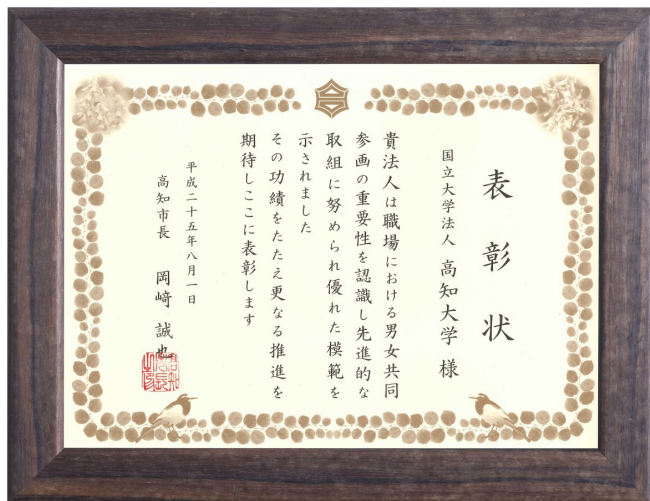 表彰状
国立大学法人 高知大学 様
貴法人は職場における男女共同
参画の重要性を認識し先進的な
取組に努められ優れた模範を
示されました
その功績をたたえ更なる推進を
期待しここに表彰します
平成二十五年八月一日
高知市長 岡﨑 誠也